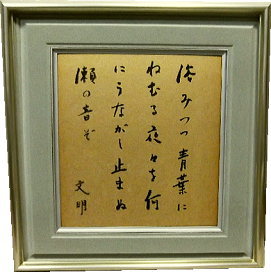 浴みつつ青葉に
ねむる夜々を何
にうながし止まぬ
瀬の音ぞ
文明